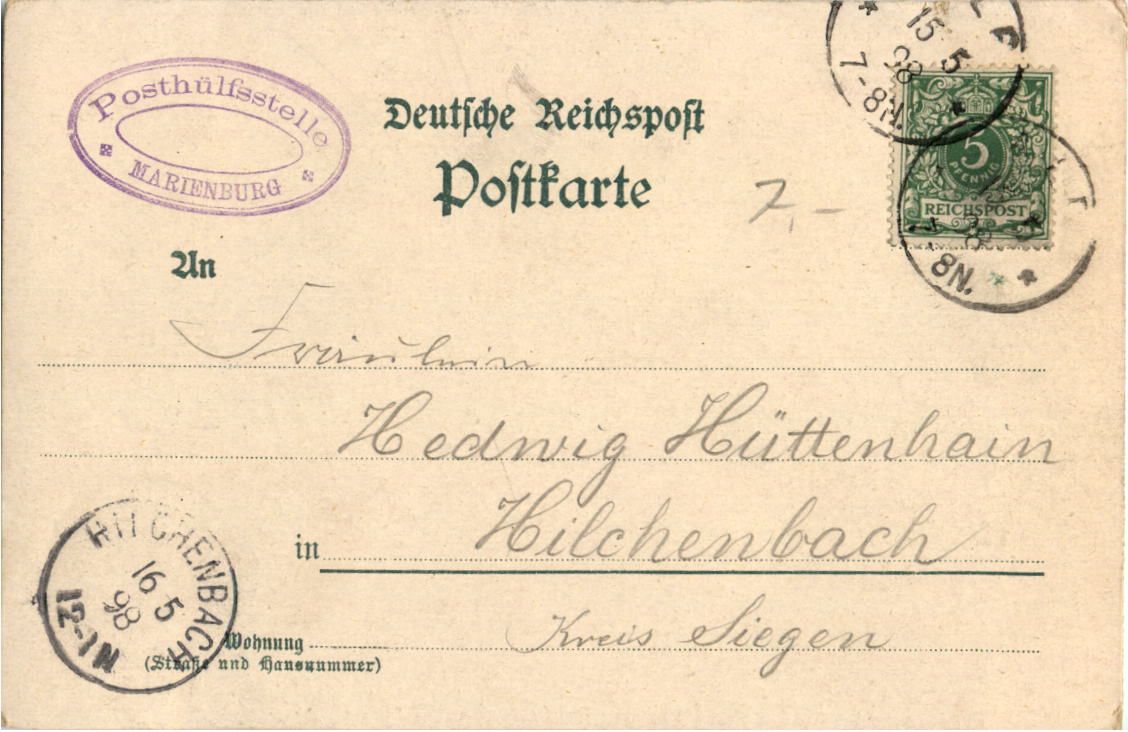 Posthülfsstelle
MARIENBURG
Deutsche Reichspost
Postkarte
15 5
98
7-8N.
5
PFENNIG
REICHSPOST
7,-
8N.
An
Fräulein
Hedwig Hüttenhain
in Hilchenbach
HILCHENBACH
16 5
98
12-1N
Wohnung Kreis Siegen
(Straße und Hausnummer)